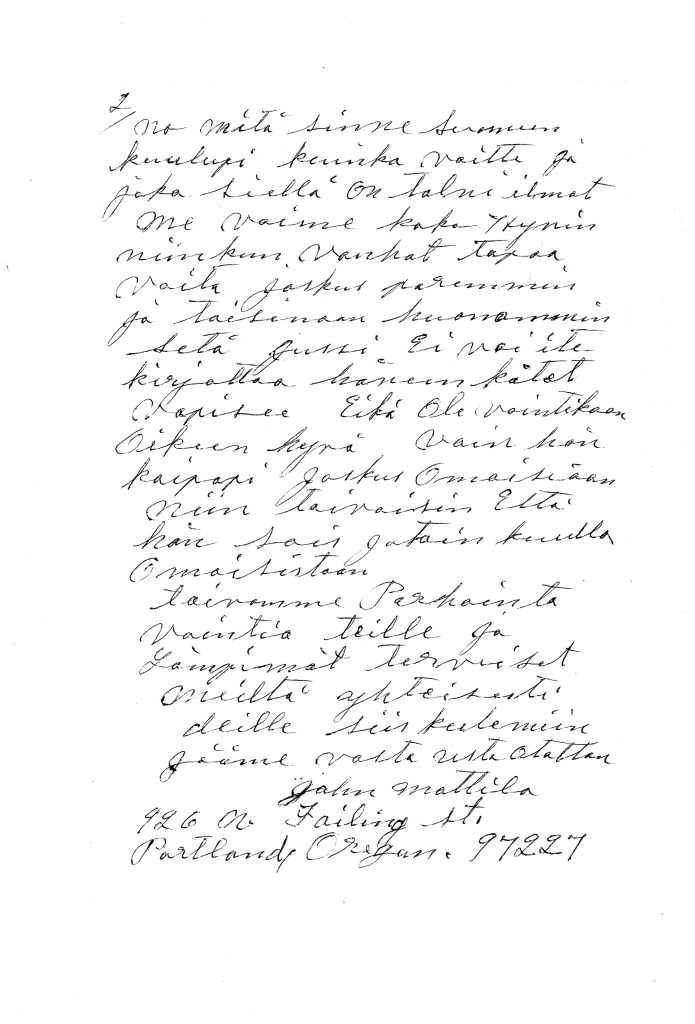 2/
no mitä sinne suomeen
kuulupi kuinka voitte ja
joko siellä on talvi ilmat
me voime koko Hyvin
niinkun vanhat tapaa
voita joskus paremmin
ja toisinaan huonommin
setä Jussi Ei voi ite
kirjottaa häneen kätet
vapisee Eikä Ole vointikaan
Oikeen hyvä vain hän
kaipapi joskus Omaisiaan
niin toivoisin Että
hän sais jotain kuulla
Omaisistaan
toivomme Parhainta
vointia teille ja
Lämpimät terveiset
meiltä yhteisesti
deille siis
jääme vasta
John Mattila
926 N. Failing st.
Portland, Oregon. 97227